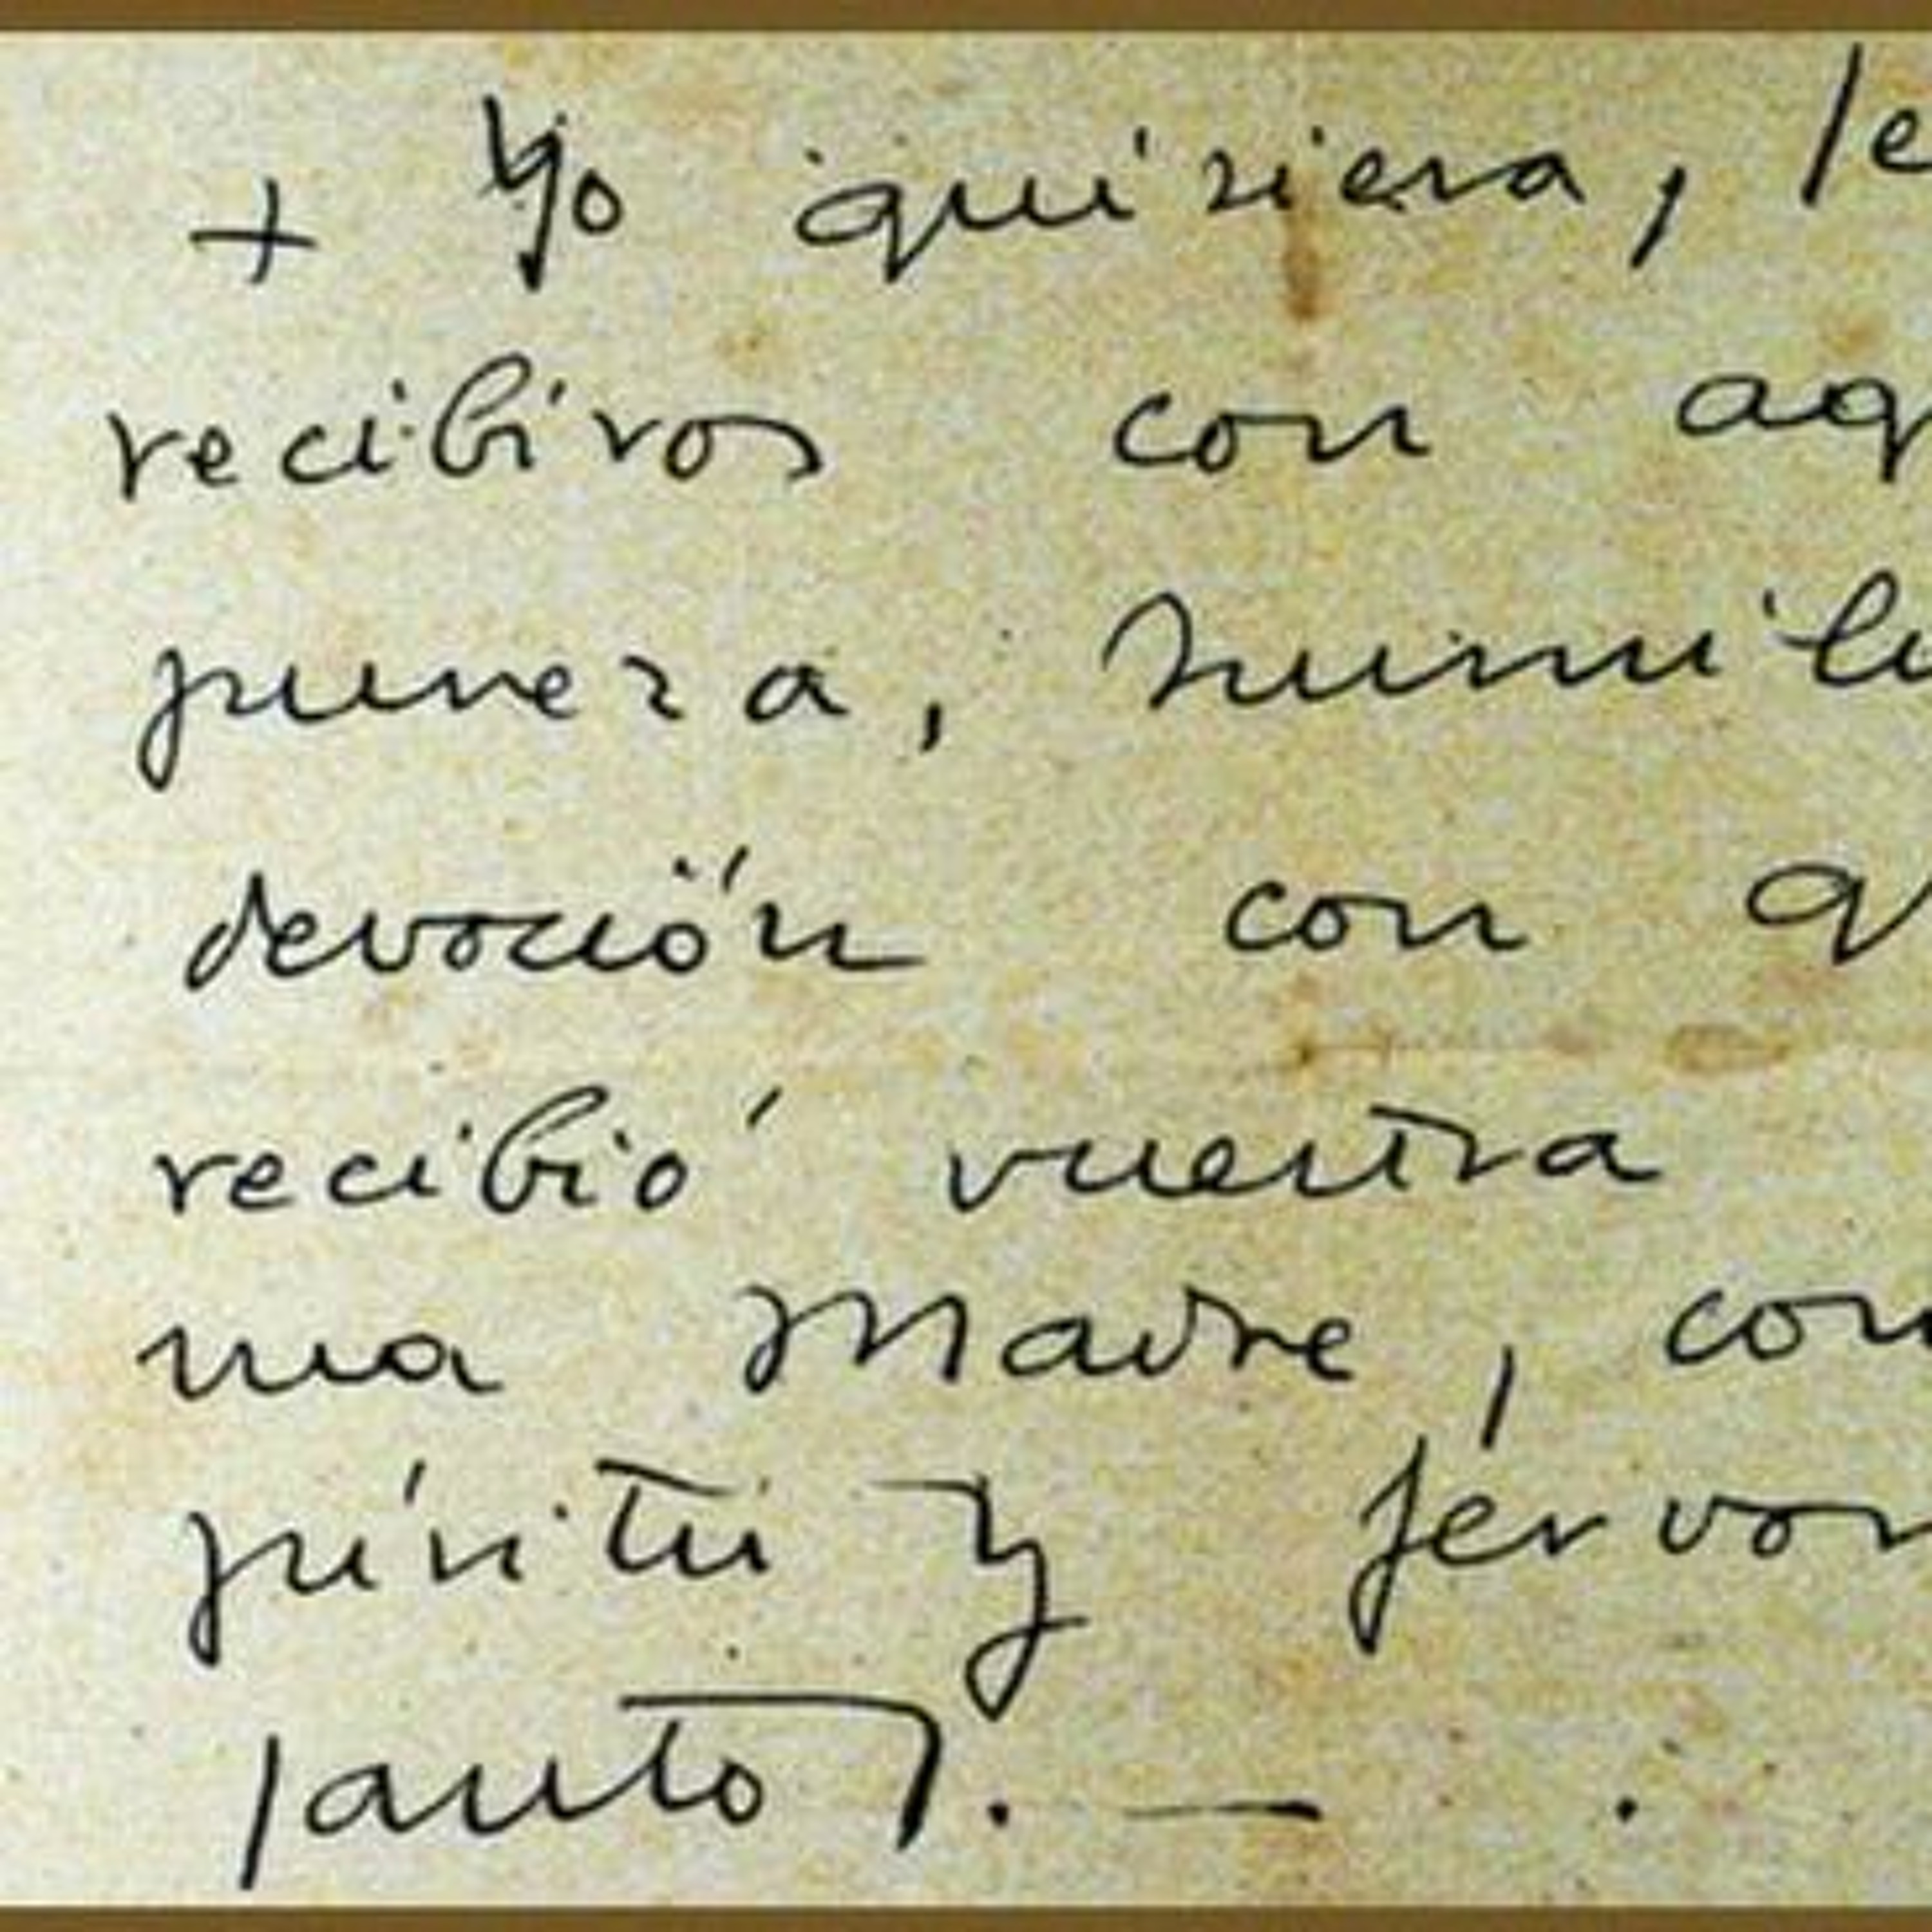 + Yo quisiera, Se
recibiros con aq
pureza, humil
devoción con q
recibió vuestra
ma Madre, con
píritu y fervor
santos. — .